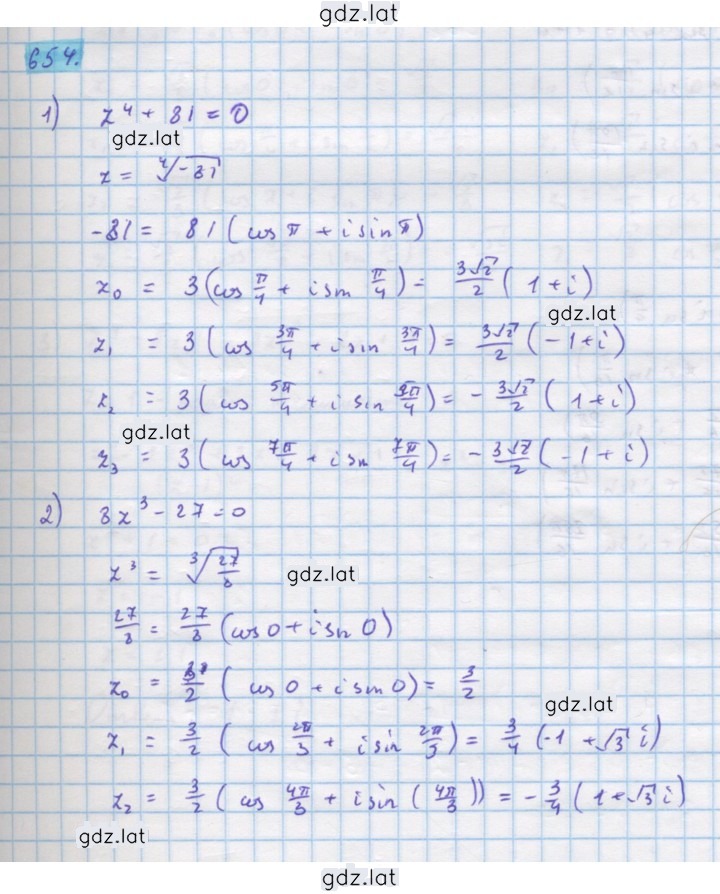 gdz.lat
654.
1) z⁴ + 81 = 0
gdz.lat
z = ⁴√-81
-81 = 81 (cos π + i sin π)
z₀ = 3 (cos π/4 + i sin π/4) = 3√2/2 (1 + i)
gdz.lat
z₁ = 3 (cos 3π/4 + i sin 3π/4) = 3√2/2 (-1 + i)
z₂ = 3 (cos 5π/4 + i sin 5π/4) = - 3√2/2 (1 + i)
gdz.lat
z₃ = 3 (cos 7π/4 + i sin 7π/4) = - 3√2/2 (-1 + i)
2) 8z³ - 27 = 0
z³ = ³√27/8
gdz.lat
27/8 = 27/8 (cos 0 + i sin 0)
z₀ = 3/2 (cos 0 + i sin 0) = 3/2
gdz.lat
z₁ = 3/2 (cos 2π/3 + i sin 2π/3) = 3/4 (-1 + √3 i)
z₂ = 3/2 (cos 4π/3 + i sin (4π/3)) = - 3/4 (1 + √3 i)
gdz.lat
gdz.lat